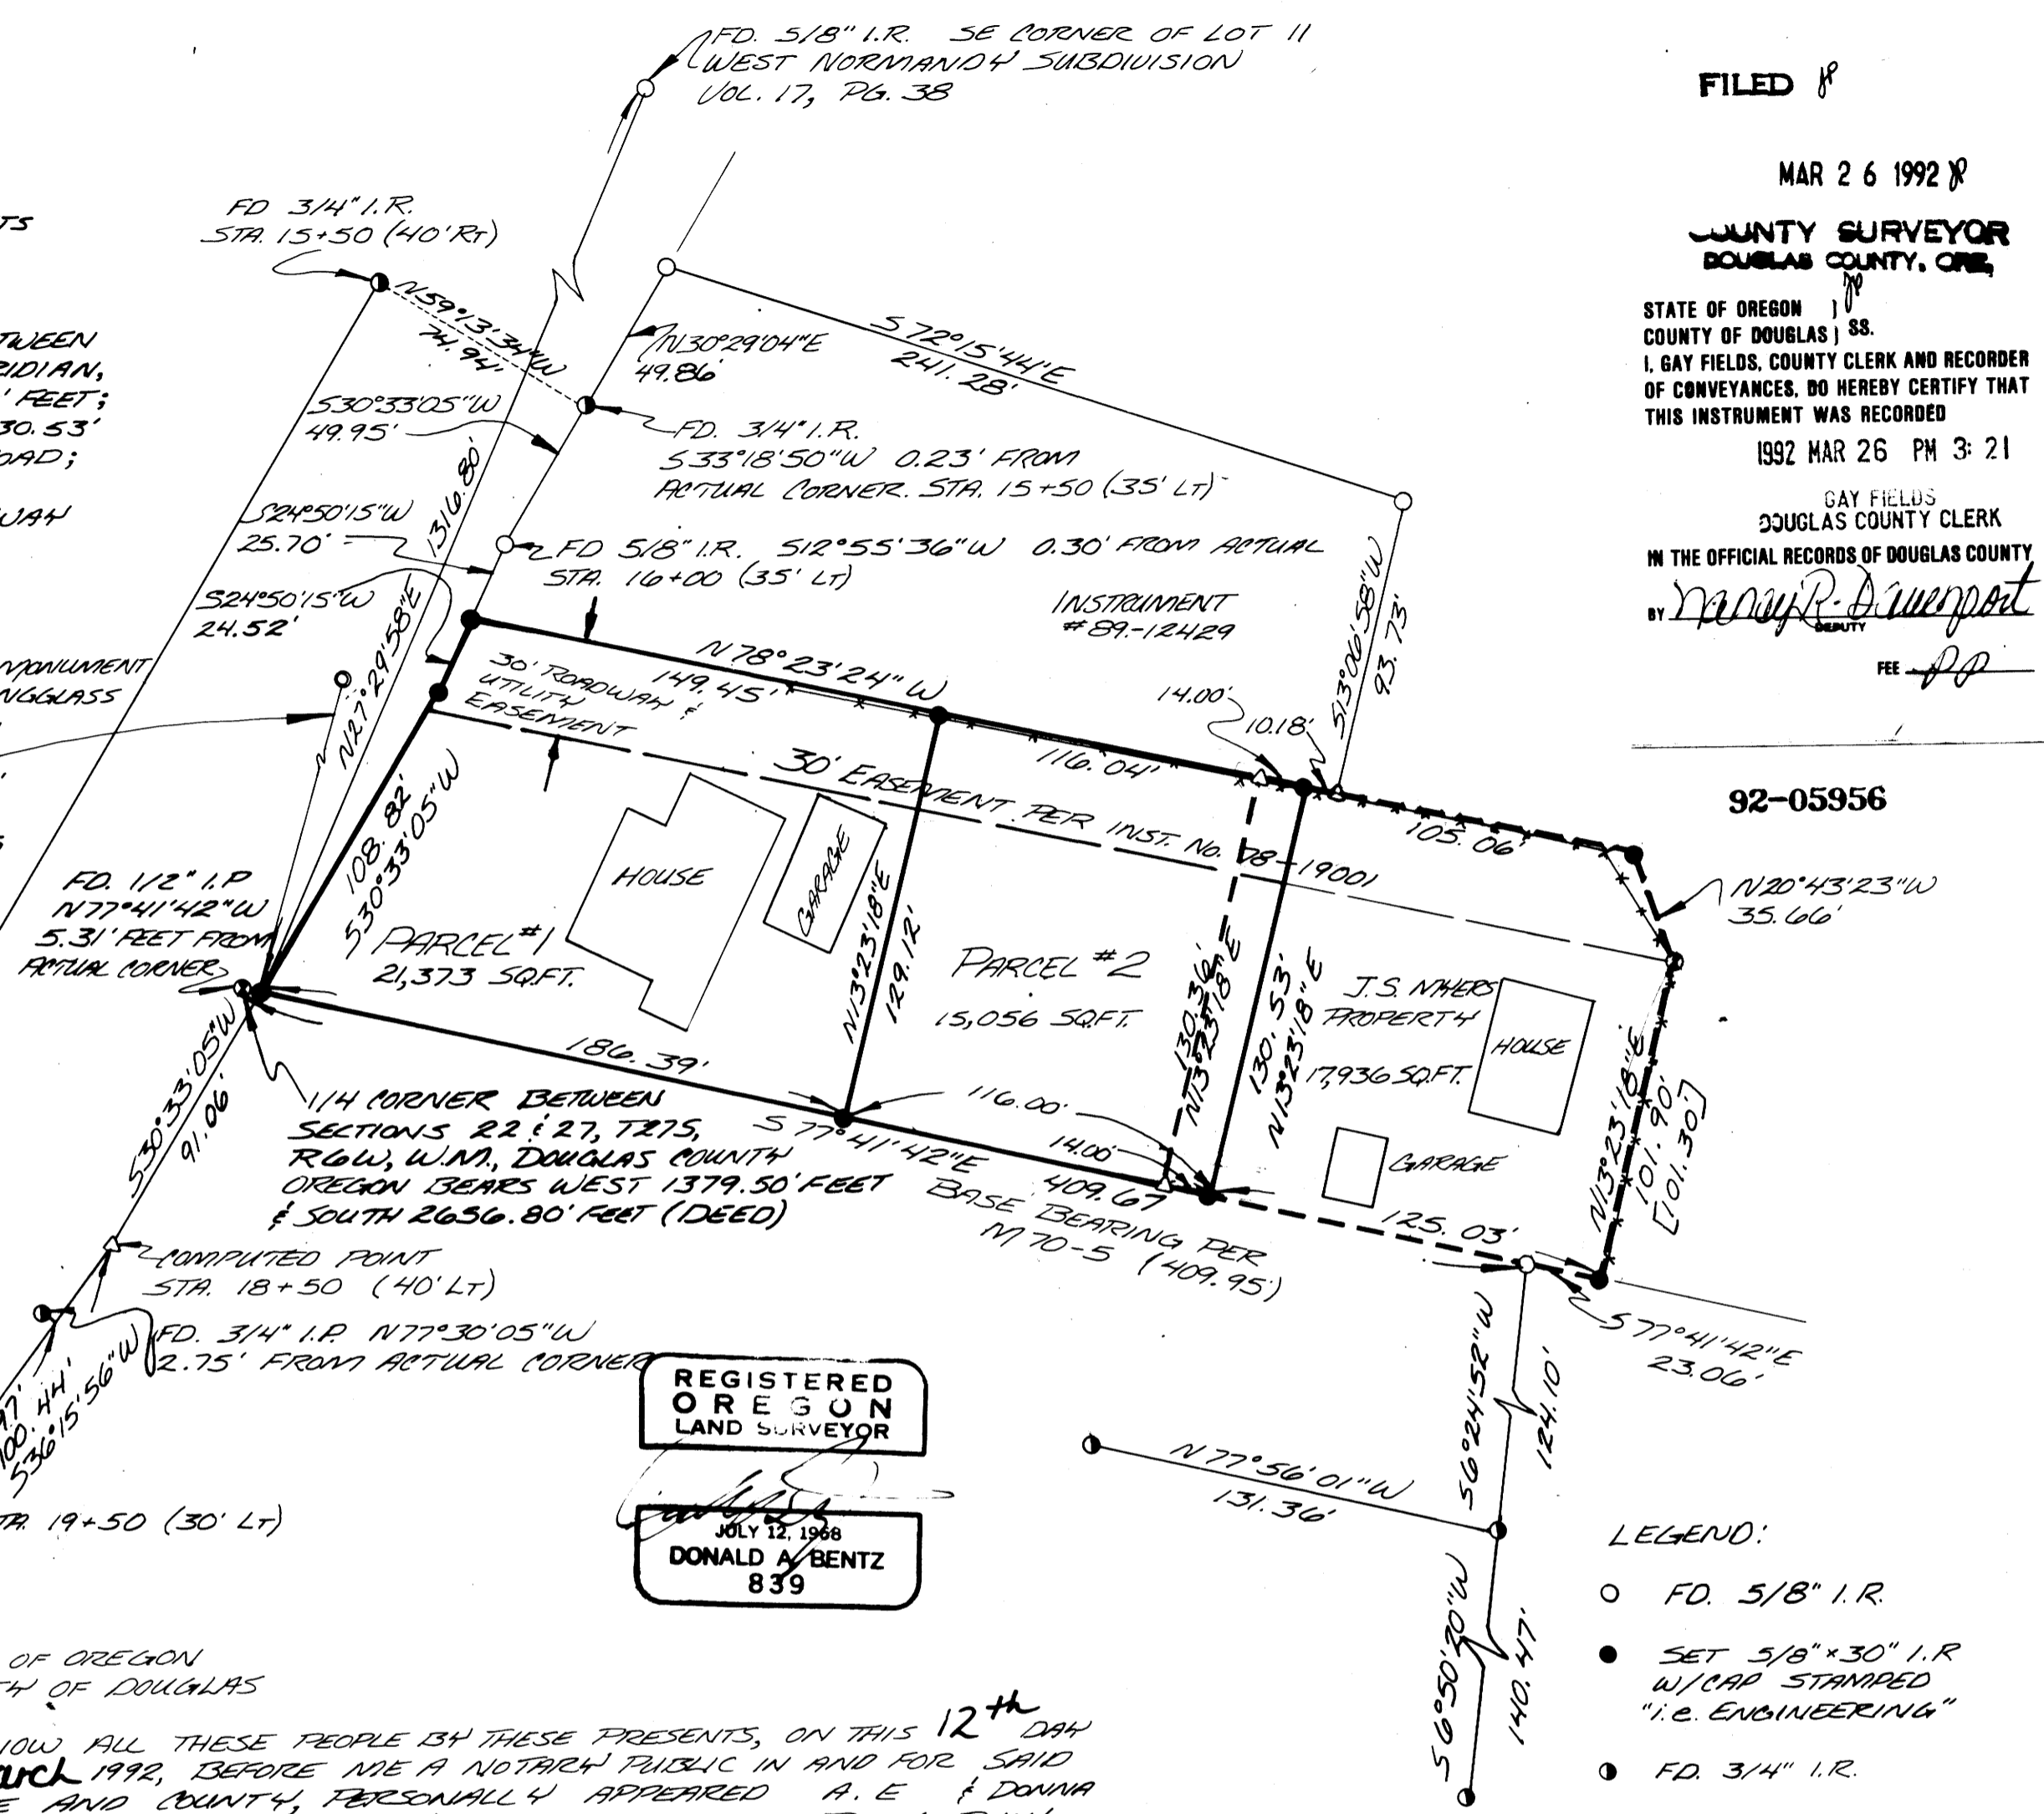 FD. 5/8" I.R. SE CORNER OF LOT 11
WEST NORMANDY SUBDIVISION
VOL. 17, PG. 38
FILED
MAR 26 1992
COUNTY SURVEYOR
DOUGLAS COUNTY, ORE.
STATE OF OREGON )
COUNTY OF DOUGLAS ) SS.
I, GAY FIELDS, COUNTY CLERK AND RECORDER
OF CONVEYANCES, DO HEREBY CERTIFY THAT
THIS INSTRUMENT WAS RECORDED
1992 MAR 26 PM 3:21
GAY FIELDS
DOUGLAS COUNTY CLERK
IN THE OFFICIAL RECORDS OF DOUGLAS COUNTY
BY Nancy R. Davenport
DEPUTY
FEE
92-05956
TS
TWEEN
RIDIAN,
' FEET;
30.53'
OAD;
WAY
MONUMENT
NGGLASS
FD 3/4" I.R.
STA. 15+50 (40' RT)
N59°13'34"W
74.94'
N30°29'04"E
49.86'
S72°15'44"E
241.28'
S30°33'05"W
49.95'
FD. 3/4" I.R.
S33°18'50"W 0.23' FROM
ACTUAL CORNER. STA. 15+50 (35' LT)
S24°50'15"W
25.70'
1316.80'
N27°29'58"E
FD 5/8" I.R. S12°55'36"W 0.30' FROM ACTUAL
STA. 16+00 (35' LT)
S24°50'15"W
24.52'
INSTRUMENT
#89-12429
S13°06'58"W
93.73'
N78°23'24"W
149.45'
30' ROADWAY &
UTILITY
EASEMENT
14.00'
10.18'
116.04'
105.06'
30' EASEMENT PER INST. No. 78-19001
N20°43'23"W
35.66'
108.82'
S30°33'05"W
HOUSE
GARAGE
FD. 1/2" I.P
N77°41'42"W
5.31' FEET FROM
ACTUAL CORNER
PARCEL #1
21,373 SQ.FT.
N13°23'18"E
129.12'
PARCEL #2
15,056 SQ.FT.
130.36'
N13°23'18"E
130.53'
N13°23'18"E
J.S. MYERS
PROPERTY
17,936 SQ.FT.
HOUSE
GARAGE
N13°23'18"E
101.90'
[101.30']
186.39'
116.00'
14.00'
S77°41'42"E
409.67
BASE BEARING PER
M70-5 (409.95')
125.03'
S77°41'42"E
23.06'
S30°33'05"W
91.06'
1/4 CORNER BETWEEN
SECTIONS 22 & 27, T27S,
R6W, W.M., DOUGLAS COUNTY
OREGON BEARS WEST 1379.50' FEET
& SOUTH 2656.80' FEET (DEED)
COMPUTED POINT
STA. 18+50 (40' LT)
FD. 3/4" I.P. N77°30'05"W
2.75' FROM ACTUAL CORNER
97'
100.44'
S36°15'56"W
TA. 19+50 (30' LT)
REGISTERED
OREGON
LAND SURVEYOR
JULY 12, 1968
DONALD A. BENTZ
839
S6°24'52"W
124.10'
N77°56'01"W
131.36'
S6°50'20"W
140.47'
LEGEND:
FD. 5/8" I.R.
SET 5/8"x30" I.R
W/CAP STAMPED
"i.e. ENGINEERING"
FD. 3/4" I.R.
OF OREGON
TY OF DOUGLAS
NOW ALL THESE PEOPLE BY THESE PRESENTS, ON THIS 12th DAY
arch 1992, BEFORE ME A NOTARY PUBLIC IN AND FOR SAID
E AND COUNTY, PERSONALLY APPEARED A. E & DONNA